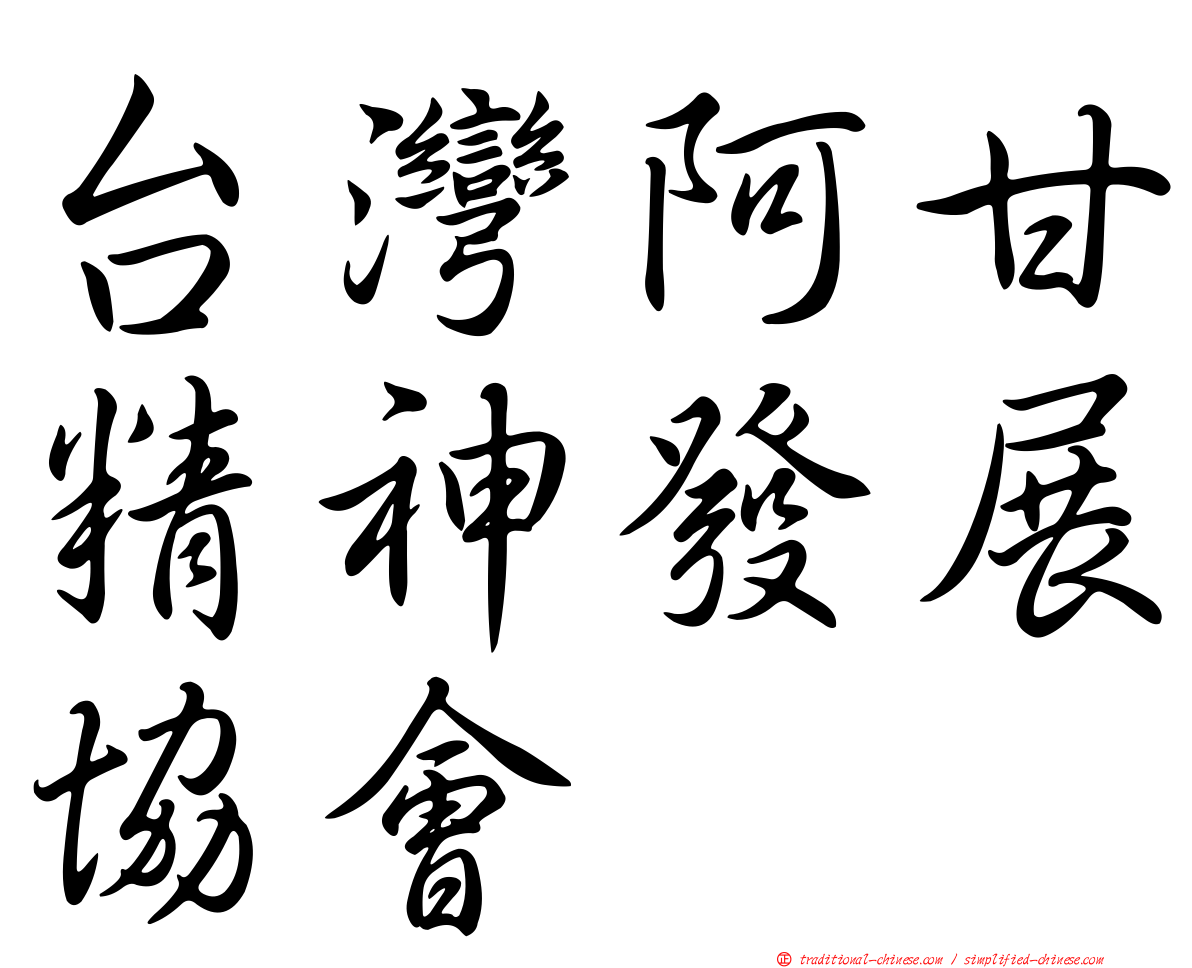 台灣阿甘
精神發展
協會
正 traditional-chinese.com / simplified-chinese.com